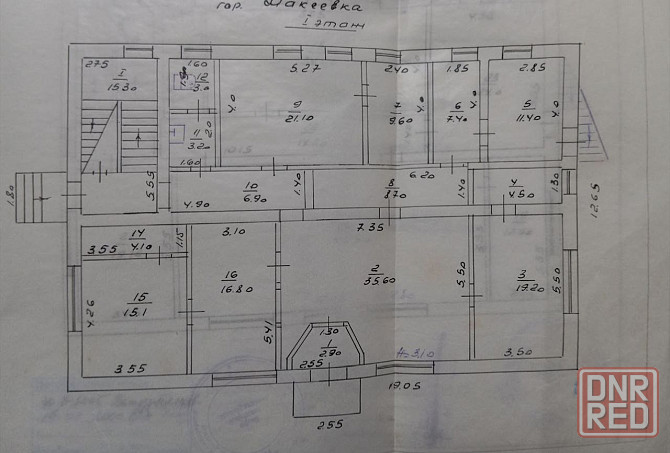 гор. Макеевка
I этаж
275
I
15.30
1.60
12
3.0
1.90
5.27
2.40
1.85
2.85
9
21.10
4.0
7
9.60
4.0
6
7.40
4.0
5
11.40
4.0
11
3.20
1.60
5.55
4.90
10
6.90
1.40
8
8.70
6.20
1.40
4
4.50
1.30
1.80
12.65
14
4.10
3.55
1.15
3.10
7.35
4.26
15
15.1
16
16.80
2
35.60
5.50
3
19.20
5.50
5,41
130
1
2.90
2.55
h=3.10
3.50
3.55
19.05
2.55
DNR
RED